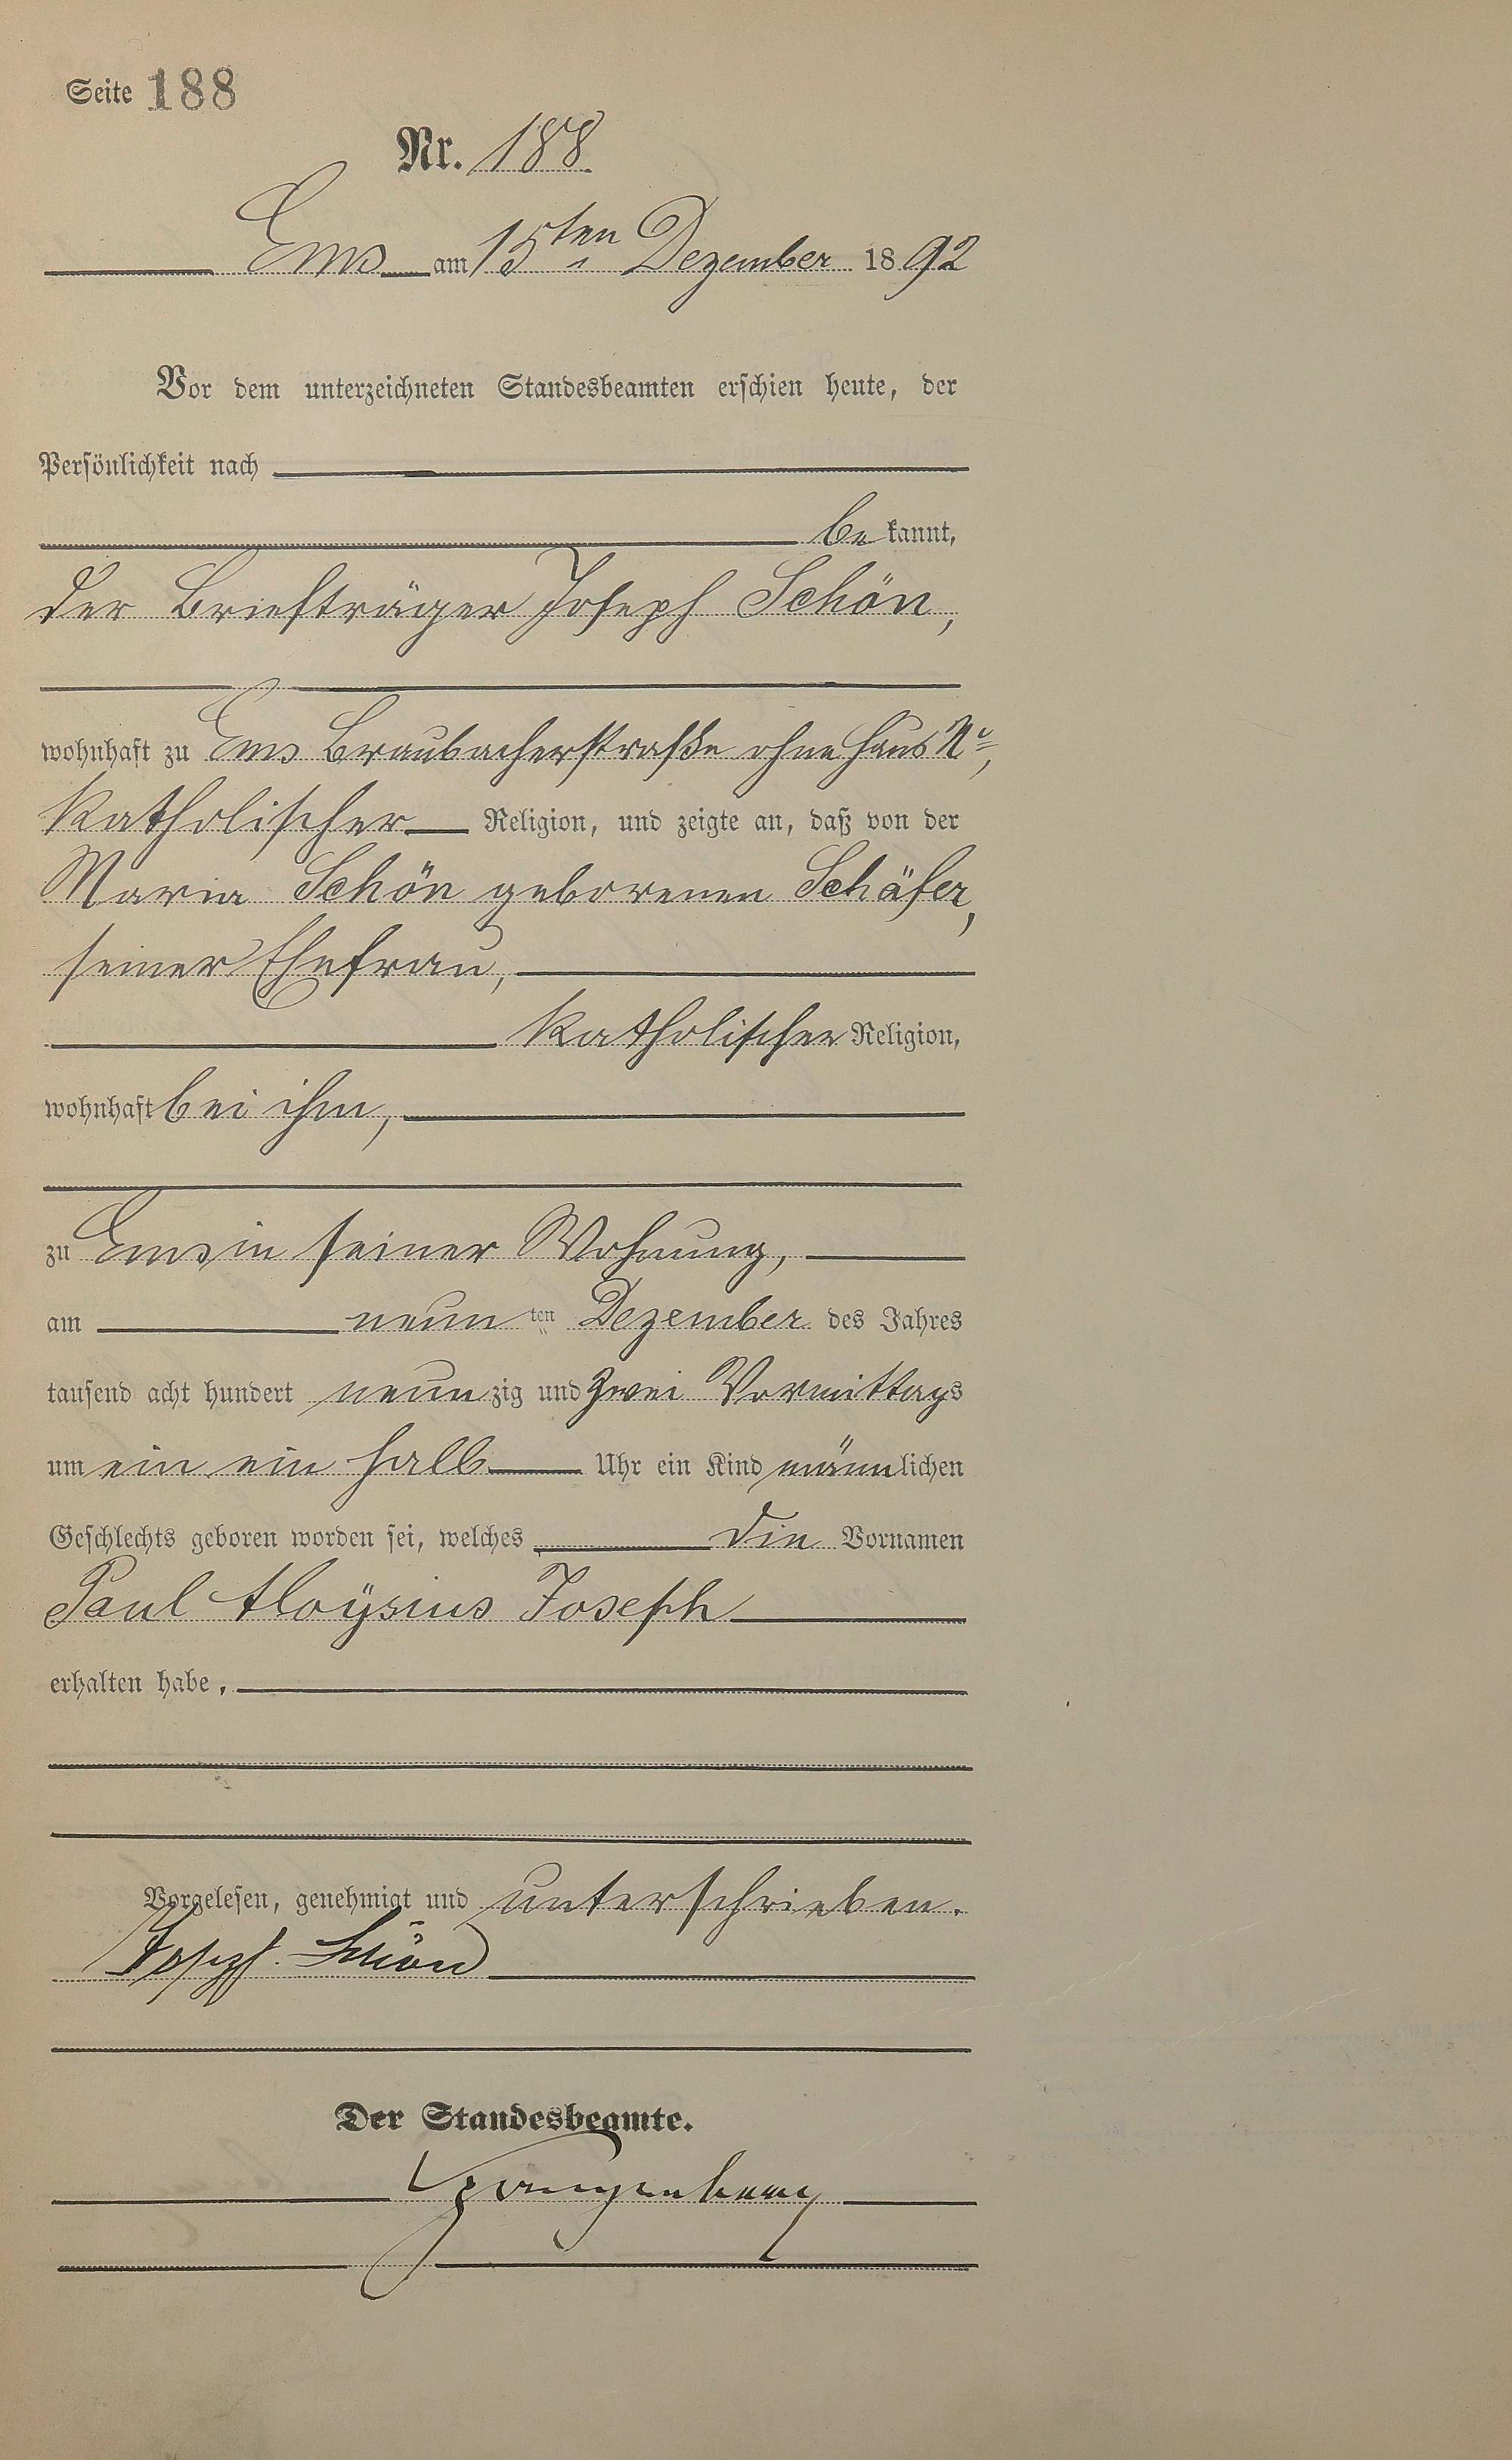 Seite 188
Nr. 188.
Ems am 15ten Dezember 1892
Vor dem unterzeichneten Standesbeamten erschien heute, der
Persönlichkeit nach
bekannt,
der Briefträger Joseph Schön,
wohnhaft zu Ems Braubacherstraße ohne Haus No,
katholischer Religion, und zeigte an, daß von der
Maria Schön geborenen Schäfer,
seiner Ehefrau,
katholischer Religion,
wohnhaft bei ihm,
zu Ems in seiner Wohnung,
am neunten Dezember des Jahres
tausend acht hundert neunzig und zwei Vormittags
um ein ein halb Uhr ein Kind männlichen
Geschlechts geboren worden sei, welches die Vornamen
Paul Aloÿsius Joseph
erhalten habe,
Vorgelesen, genehmigt und unterschrieben.
Joseph Schön
Der Standesbeamte.